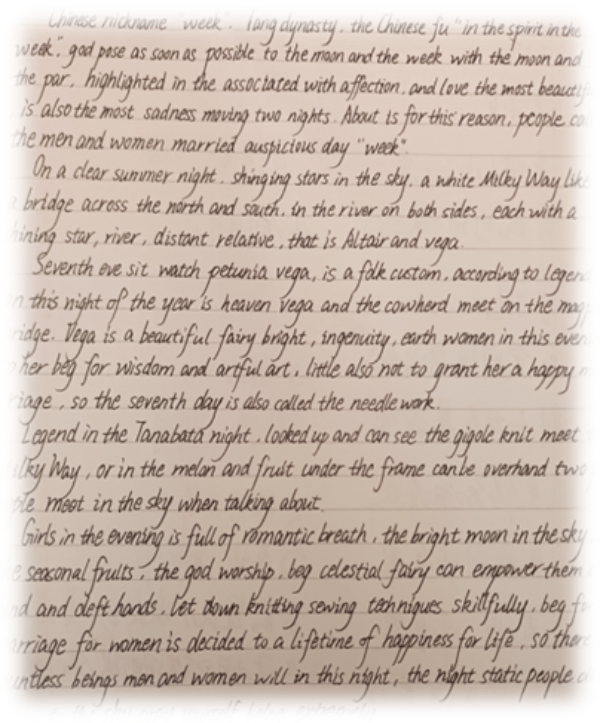 Chinese nickname "week". Tang dynasty, the Chinese fu "in the spirit in the
week". god pose as soon as possible to the moon and the week with the moon and
the par, highlighted in the associated with affection, and love the most
is also the most sadness moving two nights. About is for this reason, people
the men and women married auspicious day "week".
On a clear summer night, shinging stars in the sky, a white Milky Way like
bridge across the north and south, in the river on both sides, each with a
star, river, distant relative, that is Altair and vega.
Seventh eve sit watch petunia vega, is a folk custom, according to
this night of the year is heaven vega and the cowherd meet on the
Vega is a beautiful fairy bright, ingenuity, earth women in this
her beg for wisdom and artful art, little also not to grant her a happy
so the seventh day is also called the needle work.
Legend in the Tanabata night, looked up and can see the gigole knit meet
Way, or in the melon and fruit under the frame can be overhand two
meet in the sky when talking about.
Girls in the evening is full of romantic breath, the bright moon in the sky
seasonal fruits, the god worship, beg celestial fairy can empower them
and deft hands. Let down knitting sewing techniques skillfully, beg
for women is decided to a lifetime of happiness for life, so
beings men and women will in this night, the night static people